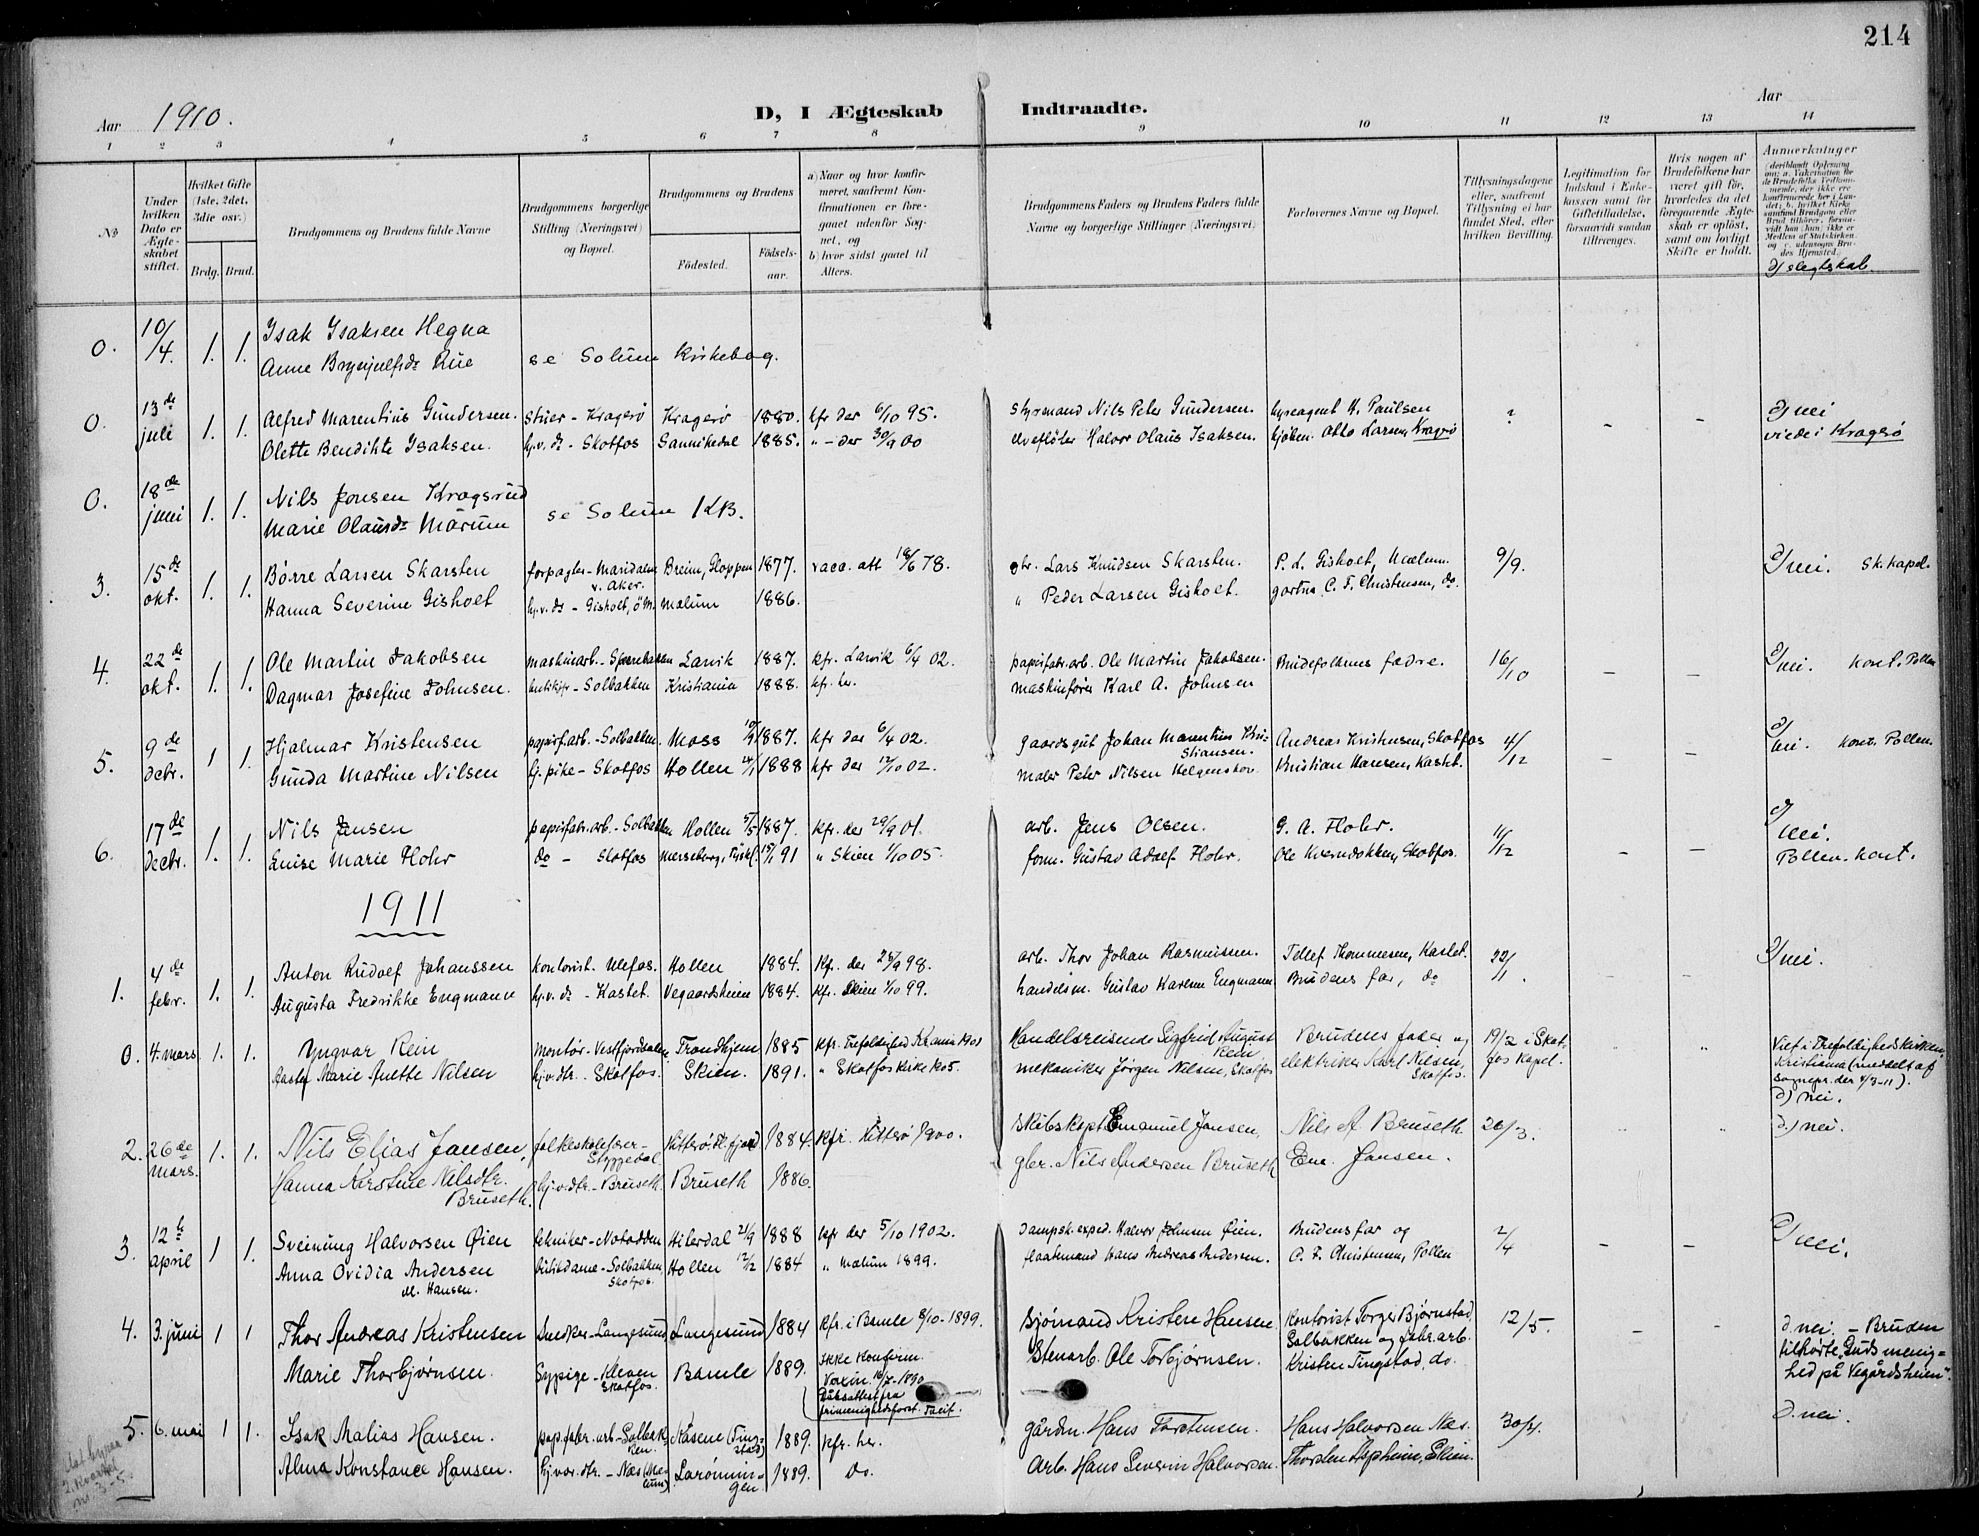 214
Aar 1910.
D, I Ægteskab Indtraadte.
Aar
1 2 3 4 5 6 7 8 9 10 11 12 13 14
No
Under hvilken Dato er Ægteskabet stiftet.
Hvilket Gifte (1ste, 2det, 3die osv.)
Brdg. Brud.
Brudgommens og Brudens fulde Navne
Brudgommens borgerlige Stilling (Næringsvei) og Bopæl.
Brudgommens og Brudens
Fødested. Fødselsaar.
a) Naar og hvor konfirmeret, saafremt Konfirmationen er foregaaet udenfor Sognet, og
b) hvor sidst gaaet til Alters.
Brudgommens Faders og Brudens Faders fulde Navne og borgerlige Stillinger (Næringsvei)
Forlovernes Navne og Bopæl.
Tillysningsdagene eller, saafremt Tillysning ei har fundet Sted, efter hvilken Bevilling.
Legitimation for Indskud i Enkekassen samt for Giftetilladelse, forsaavidt saadan tiltrænges.
Hvis nogen af Brudefolkene har været gift før, hvorledes da det foregaaende Ægteskab er opløst, samt om lovligt Skifte er holdt.
Anmerkninger
d) slegtskab.
0. 10/4. 1. 1. Isak Isaksen Hegna
Anne Brynjulfsdr Rue se Solum Kirkebog.
0. 13de juli 1. 1. Alfred Marentius Gundersen. Stuer - Kragerø Kragerø 1880. kfr der 6/10 95. styrmand Nils Peter Gundersen. hyreagent H. Paulsen ? - - d) nei
Olette Bendikte Isaksen. hj.v. dr - Skotfos Sannikedal 1885. " - der 30/9 00 elvefløter Halvor Olaus Isaksen. kjøbm. Otto Larsen, Kragerø viede i Kragerø
0. 18de juni 1. 1. Nils Jonsen Kragsrud
Marie Olausdr Mørum se Solum KB.
3. 15de okt. 1. 1. Børre Larsen Skarsten forpagter - Maridalen v. Aker. Breim, Gloppen 1877. vacc. att 18/6 78. gbr. Lars Knudsen Skarsten. P. L. Gisholt, Mælum 9/9. d/ nei. Sk. kapel.
Hanna Severine Gisholt hj.v. dr - Gisholt, ø.M. Mælum 1886. " Peder Larsen Gisholt. gartn. C. F. Christensen, do.
4. 22de okt. 1. 1. Ole Martin Jakobsen maskinarb. - Larvik 1887. kfr. Larvik 6/4 02. papirfabr.arb. Ole Martin Jakobsen. Brudefolkenes fædre. 16/10 - - d/ nei. kont. Pollen
Dagmar Josefine Johnsen. - Solbakken Kristiania 1888. kfr. her. maskinfører Karl A. Johnsen
5. 9de decbr. 1 1. Hjalmar Kristensen papirf.arb. - Solbakken. Moss 1887. kfr der 6/4 02. gaardsgut Johan Marentius Kristiansen. Andreas Kristensen, Skotfos 4/12 - d/ nei. kont. Pollen.
Gunda Martine Nilsen tj. pike - Skotfos Hollen 1888 kfr der 12/10 02. maler Peter Nilsen Helgenskov. Kristian Hansen, Kastet.
6. 17de decbr. 1. 1. Nils Jensen papirfabr.arb. - Solbakken Hollen 5/5 1887. kfr. der 29/9 01. arb. Jens Olsen. G. A. Flohr. 11/12 - - d) nei.
Luise Marie Flohr do - Skotfos Merseburg, Tyskl. 15/1 91 " Skien 1/10 05. form. Gustav Adolf Flohr. Ole Kverndokken, Skotfos. Pollen. kont.
1911
1. 4de febr. 1. 1. Anton Rudolf Johanssen kontorist. Ulefos. Hollen 1884. kf. der 25/9 98. arb. Thor Johan Rasmussen. Tellef Thommesen, Kastet. 22/1. d/ nei.
Augusta Fredrikke Engmann hj.v. dr - Kastet. Vegaardsheien 1884. kfr. Skien 1/10 99. handelsm. Gustav Karlsen Engmann Brudens far, do
0. 4. mars 1. 1. Yngvar Rein Montør - Vestfjorddalen Trondhjem 1885 kfr. Trefoldighed Kr.ania 1901 Handelsreisende Sigfried August Rein Brudens fader og 19/2 i Skotfos kapel. " " Viet i Trefoldighedskirken, Kristiania (meddelt af sognepr. der 4/3-11). d) nei.
Marie Anette Nilsen hj.v.dtr. - Skotfos. Skien. 1891. " Skotfos kirke 1905. mekaniker Jørgen Nilsen, Skotfos elektriker Karl Nilsen, Skotfos.
2. 26de mars. 1. 1. Nils Elias Jansen, folkeskolelærer - Styggedal Hitterø 1884. kfr. Hitterø 1900. Skibskapt. Emanuel Jansen, Nils A Bruseth 26/3. d) nei.
Hanna Kirstine Nilsdtr. Bruseth. hj.v.dtr. - Bruseth. Bruseth 1886. gbr. Nils Andersen Bruseth Em. Jansen.
3. 12te april 1 1. Sveinung Halvorsen Øien tekniker - Notodden Hiterdal 21/9 1888 kfr der 5/10 1902. dampsk.exped. Halvor Johnsen Øien. Brudens far og 2/4 - - d/ nei.
Anna Ovidia Andersen butikdame - Solbakken, Skotfos. Hollen 12/12 1884 " Mælum 1899. flaatmand Hans Andreas Andersen. C. F. Christensen, Pollen
m. Hansen.
4. 3. juni 1 1 Thor Andreas Kristensen Snedker - Langesund Langesund 1884 kfr. i Bamle 8/10 - 1899. Sjømand Kristen Hansen. Kontorist Torger Bjørnstad, Solbakken og fabr.arb. 12/5. - - d. nei. - Bruden tilhørte "Guds menighed på Vegårdsheien".
Marie Thorbjørnsen. Sypige - Kleven Skotfos. Bamle 1889. Ikke konfirm. Vaxin. 16/7 - 1890 Dåbsattest fra frimenighedsforst. Stenarb. Ole Torbjørnsen. Kristen Tingstad, do.
5. 6. mai 1 1. Isak Malias Hansen. pap.fabr. arb - Solbakken. Åsene (Tingstad) 1889. kfr. her. gårdm. Hans Torstensen. Hans Halvorsen Næs. 30/4. d. nei.
Alma Konstance Hansen. hj.vær. dtr. - Næs (Mælum) Larønningen 1889. do. Arb. Hans Severin Halvorsen. Thorsten Aspheim, Skien.
2. kvartal
nr. 3-5.